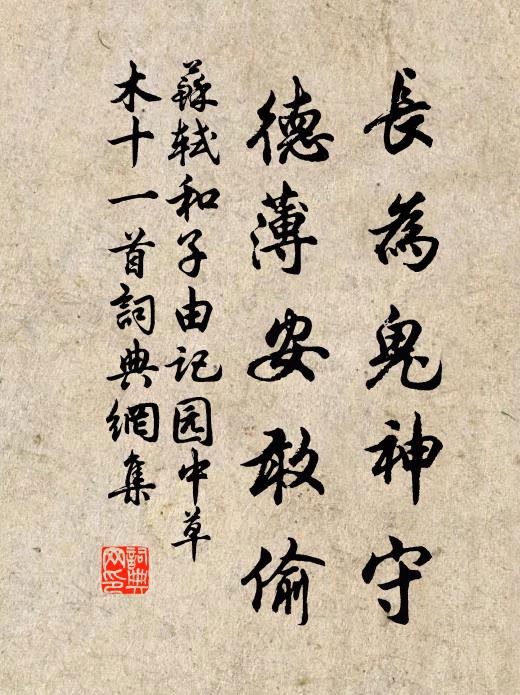 長為鬼神守
德薄安敢偷
蘇軾和子由記园中草
木十一首詞典網集
詞典
网印